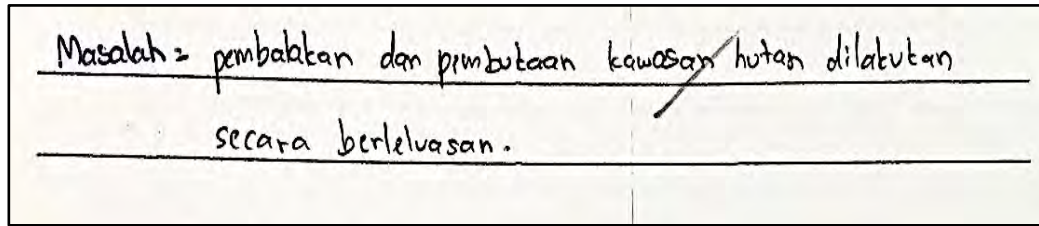 Masalah = pembalakan dan pembukaan kawasan hutan dilakukan
secara berleluasan.